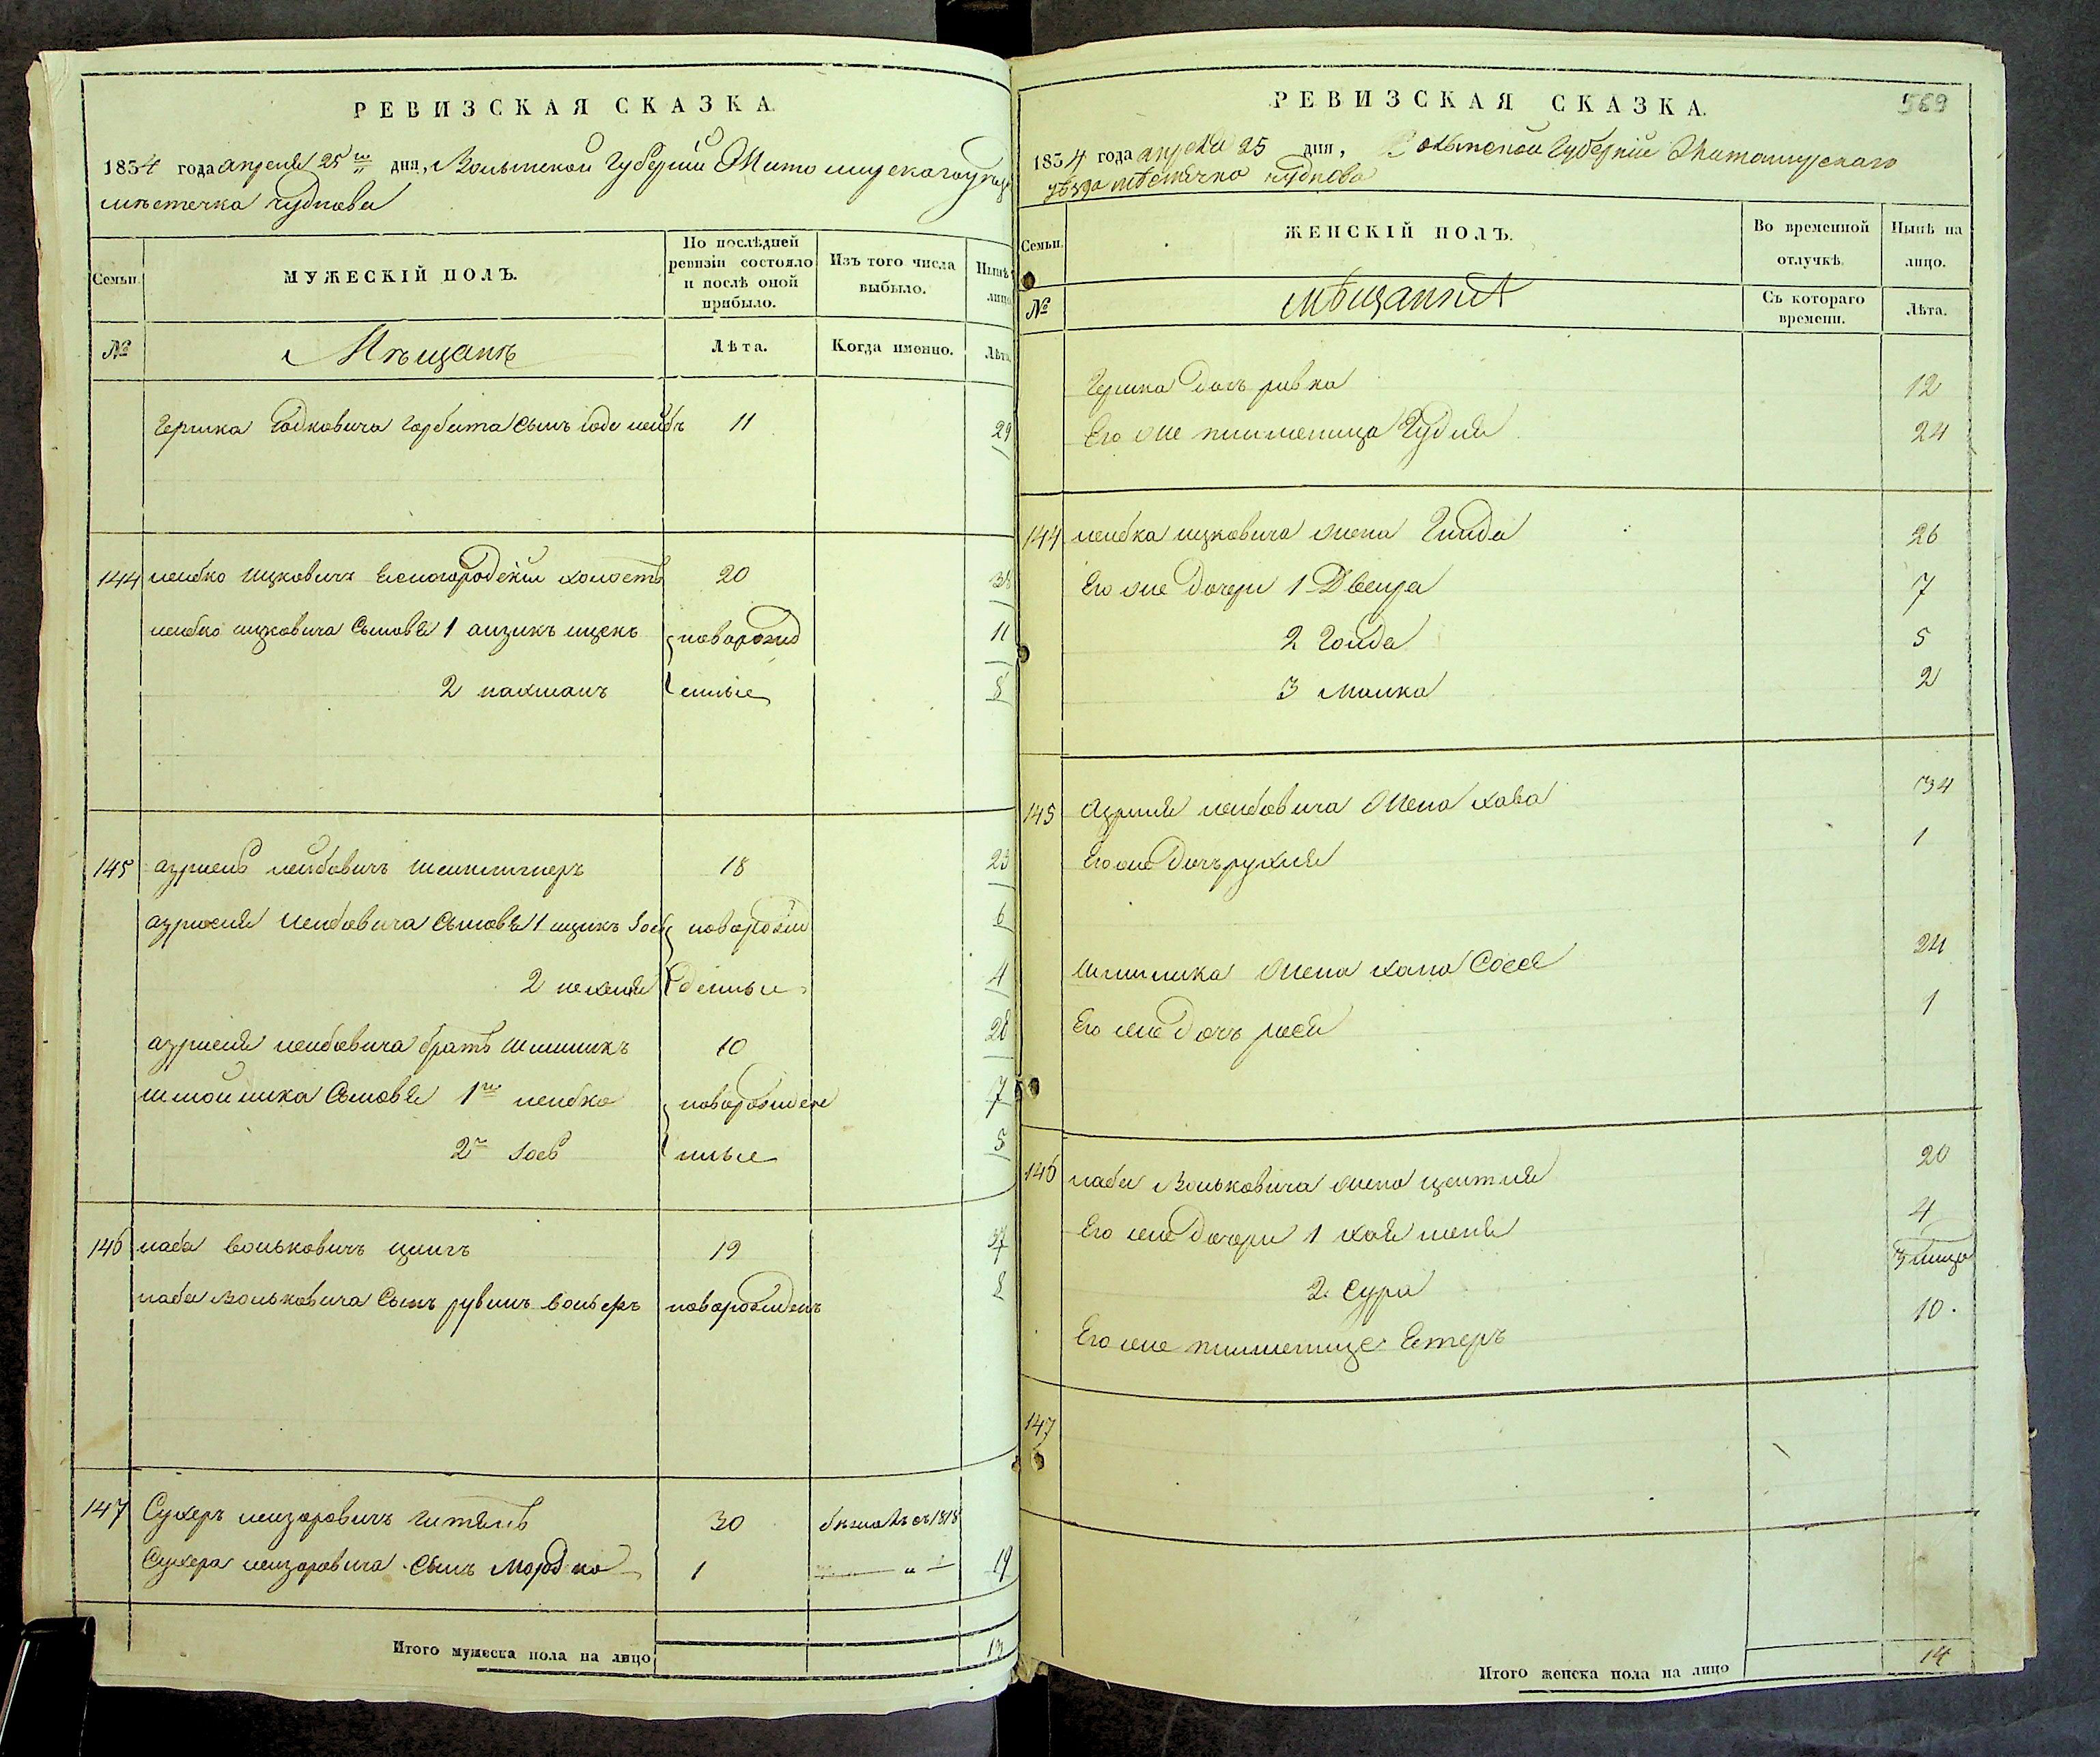 РЕВИЗСКАЯ СКАЗКА.
1834 года апреля 25го дня, Волынской Губерніи Житомирскаго уѣзда
мѣстечка Чуднова
Семьи.
МУЖЕСКІЙ ПОЛЪ.
По послѣдней ревизіи состояло и послѣ оной прибыло.
Изъ того числа выбыло.
Нынѣ лицо
№
Мѣщанъ
Лѣта.
Когда именно.
Лѣта
Гершка Годковича сынъ лейбъ 11 29
144 лейбко ицковичъ холостъ 20
лейбко ицковича Сыновья 1 айзикъ новорожд 11
2 нахманъ енные 8
145 азриель лейбовичъ 18 23
азриеля лейбовича Сыновья 1 ицикъ новорож 6
2 денные 4
азриеля лейбовича братъ шлиомикъ 10 28
шлиомика Сыновья 1й лейбко новорожден 7
2й Іосъ ные 5
146 лаба вольковичъ 19 37
лаба Вольковича Сынъ рувинъ новорожденъ 8
147 Сухеръ лейзоровичъ 30 бѣжалъ съ 1818
Сухера лейзоровича Сынъ Мордко 1 " 19
Итого мужеска пола на лицо 13
РЕВИЗСКАЯ СКАЗКА.
569
1834 года апреля 25 дня, Волынской Губерніи Житомирскаго
уѣзда мѣстечка Чуднова
Семьи.
ЖЕНСКІЙ ПОЛЪ.
Во временной отлучкѣ.
Нынѣ на лицо.
№
мѣщанки
Съ котораго времени.
Лѣта.
Гершка дочь ривка 12
Его же племеница Гудля 24
144 лейбка ицковича жена Гинда 26
Его же дочери 1 Двейра 7
2 Голда 5
3 Малка 2
145 Азриеля лейбовича жена хава 34
Его же дочь рухля 1
шлиомика жена хана Сося 24
Его же дочь рися 1
146 лаба Вольковича жена 20
Его же дочери 1 хая 4
2 Сура 3
Его же племенице Естеръ 10.
147
Итого женска пола на лицо 14